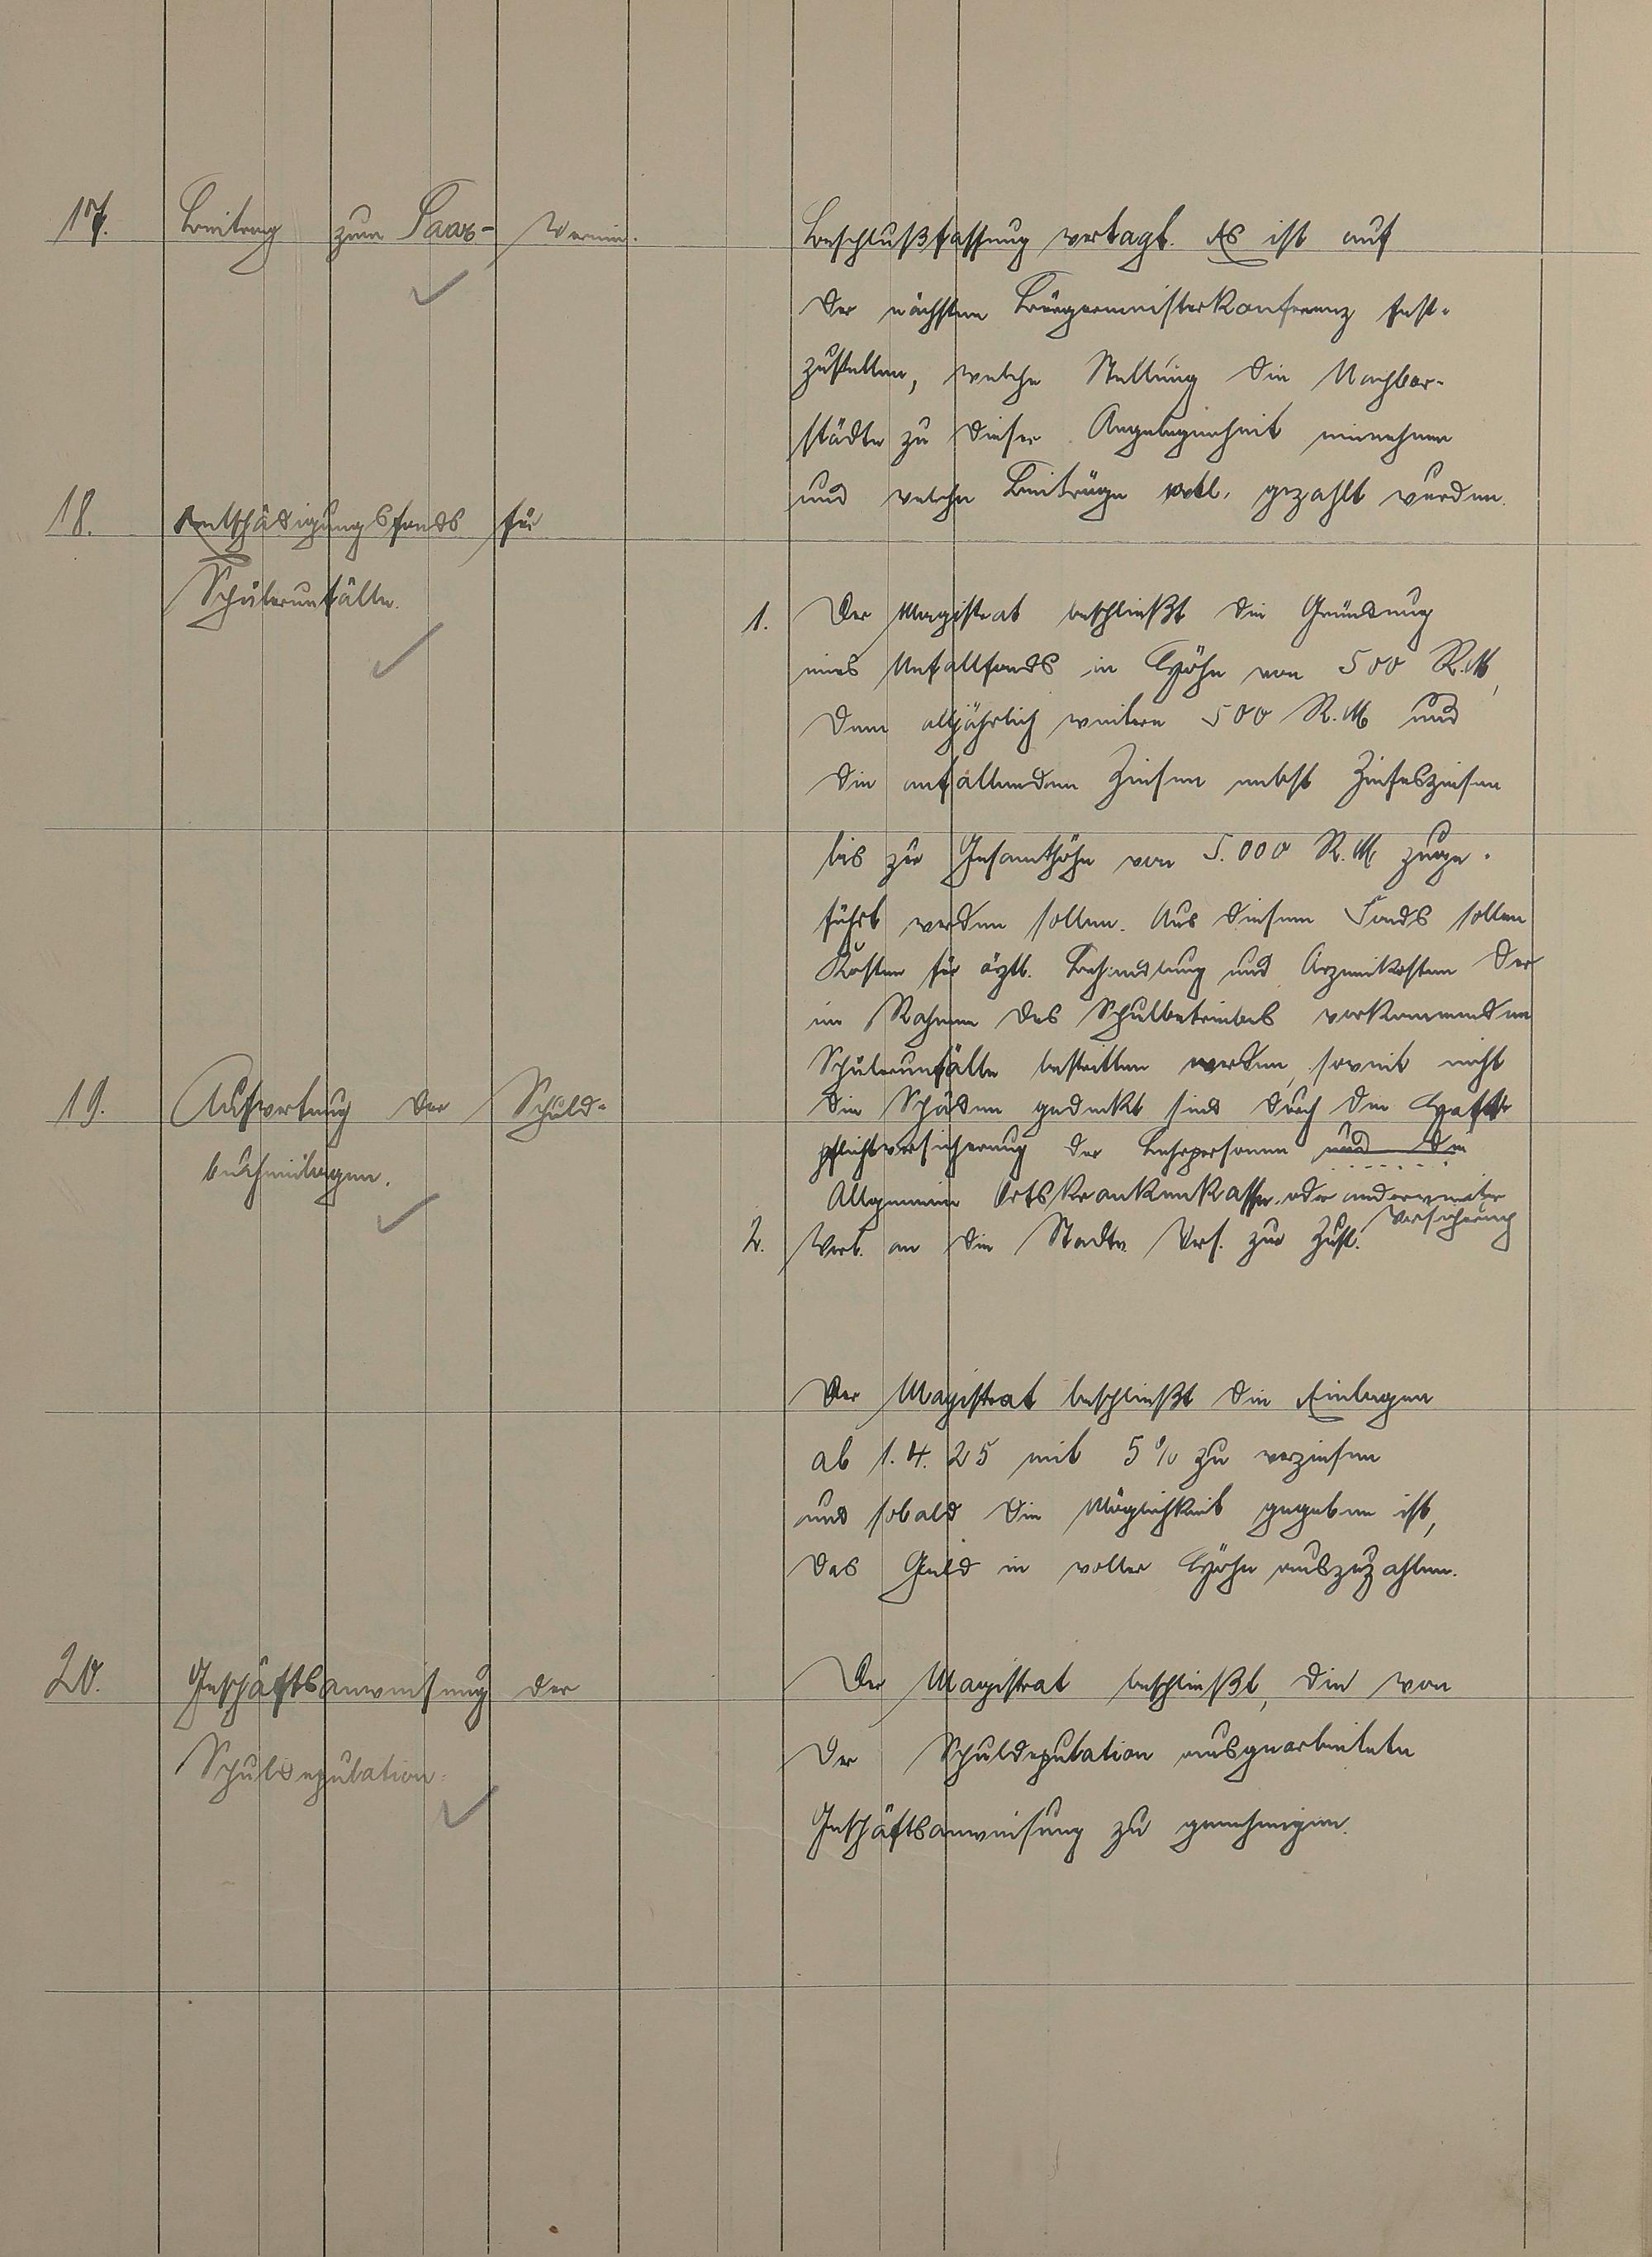 17.
Beitrag zum Saar-Verein.
Beschlußfassung vertagt. Es ist auf
der nächsten Bürgermeisterkonferenz fest-
zustellen, welche Stellung die Nachbar-
städte zu dieser Angelegenheit einnehmen
und welche Beiträge evtl. gezahlt werden.
18.
Entschädigungsfonds für
Schülerunfälle.
1. Der Magistrat beschließt die Gründung
eines Unfallfonds in Höhe von 500 R.M,
dem alljährlich weitere 500 R.M und
die anfallenden Zinsen nebst Zinseszinsen
bis zur Gesamthöhe von 5.000 R.M zuge-
führt werden sollen. Aus diesem Fonds sollen
Kosten für ärztl. Behandlung und Arzneikosten der
im Rahmen des Schulbetriebes vorkommenden
Schülerunfälle bestritten werden, soweit nicht
die Schäden gedeckt sind durch den Haft-
pflichtversicherung der Lehrpersonen und die
Allgemeine Ortskrankenkasse oder anderweite
Versicherung
2. Vorl. an die Stadtv. Vers. zur Zust.
19.
Aufwertung der Schuld-
bucheinlagen.
Der Magistrat beschließt die Einlagen
ab 1.4.25 mit 5% zu verzinsen
und sobald die Möglichkeit gegeben ist,
das Geld in voller Höhe auszuzahlen.
20.
Geschäftsanweisung der
Schuldeputation.
Der Magistrat beschließt, die von
der Schuldeputation ausgearbeitete
Geschäftsanweisung zu genehmigen.